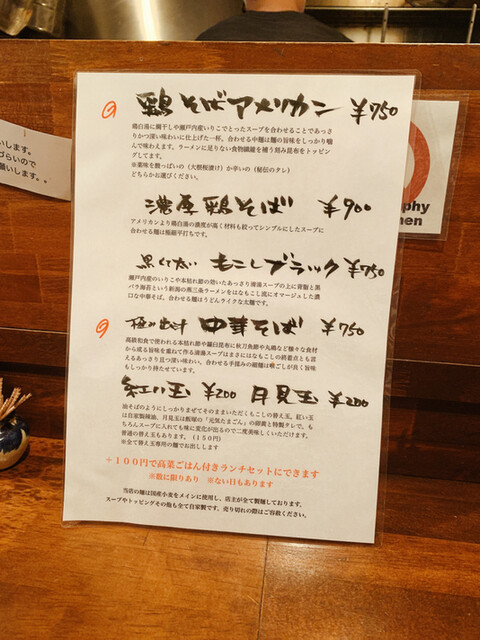 鶏そばアメリカン ¥750
鶏白湯に鯛干しや瀬戸内産いりこでとったスープを合わせることであっさりかつ深い味わいに仕上げた一杯。合わせる中麺は麺の旨味をしっかり噛んで味わえます。ラーメンに足りない食物繊維を補う刻み昆布をトッピングしてます。
※薬味を酸っぱいの(大根桜漬け)か辛いの(秘伝のタレ)
どちらかお選びください。
濃厚鶏そば ¥900
アメリカンより鶏白湯の濃度が高く材料も絞ってシンプルにしたスープに
合わせる麺は極細平打ちです。
黒くて太い もこしブラック ¥750
瀬戸内産のいりこや本枯れ節の効いたあっさり清湯スープの上に背脂と黒バラ海苔という新潟の燕三条ラーメンをはなもこし流にオマージュした濃口な中華そば。合わせる麺はうどんライクな太麺です。
極み出汁 中華そば ¥750
高級和食で使われる本枯れ節や羅臼昆布に秋刀魚節や丸鶏など様々な食材から成る旨味を重ねて作る清湯スープはまさにはなもこしの終着点とも言えるあっさり且つ深い味わい。合わせる手揉みの細麺は喉ごしが良く旨味もしっかり持ちています。
紅い玉 ¥200 月見玉 ¥200
油そばのようにしっかりまぜてそのままいただくもこしの替え玉。紅い玉は自家製辣油、月見玉は飯塚の「元気たまごん」の卵黄と特製タレで。もちろんスープに入れても味に変化が出るので二度美味しくいただけます。
普通の替え玉もあります。(150円)
※全て替え玉専用の麺でお出しします
+100円で高菜ごはん付きランチセットにできます
※数に限りあり ※ない日もあります
当店の麺は国産小麦をメインに使用し、店主が全て製麺しております。
スープやトッピングその他も全て自家製です。売り切れの際はご容赦ください。
いします。
づらいので
願いします。